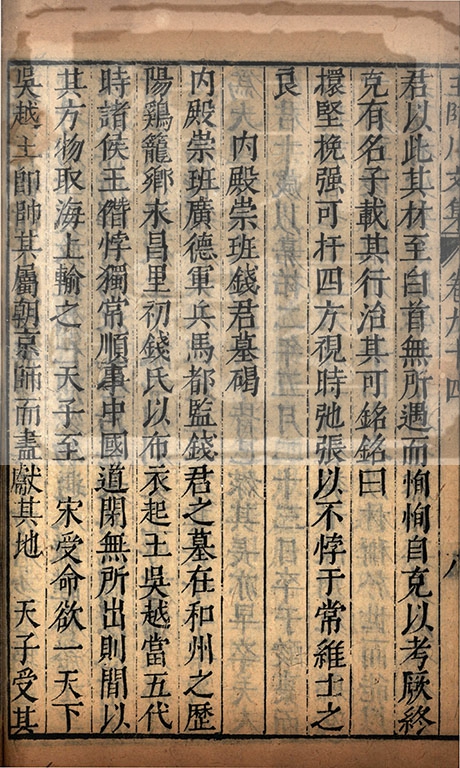 王臨川文集 卷九十四 八
君以此其材至白首無所遇而恂恂自克以考厥終
克有名子載其行治其可銘銘曰
擐堅挽强可扞四方視時弛張以不悖于常維士之
良
内殿崇班錢君墓碣
内殿崇班廣德軍兵馬都監錢君之墓在和州之歷
陽鶏籠鄉永昌里初錢氏以布衣起王吳越當五代
時諸侯王僭悖獨常順事中國道閉無所出則間以
其方物取海上輸之 天子至 宋受命欲一天下
吳越王即帥其屬朝京師而盡獻其地 天子受其